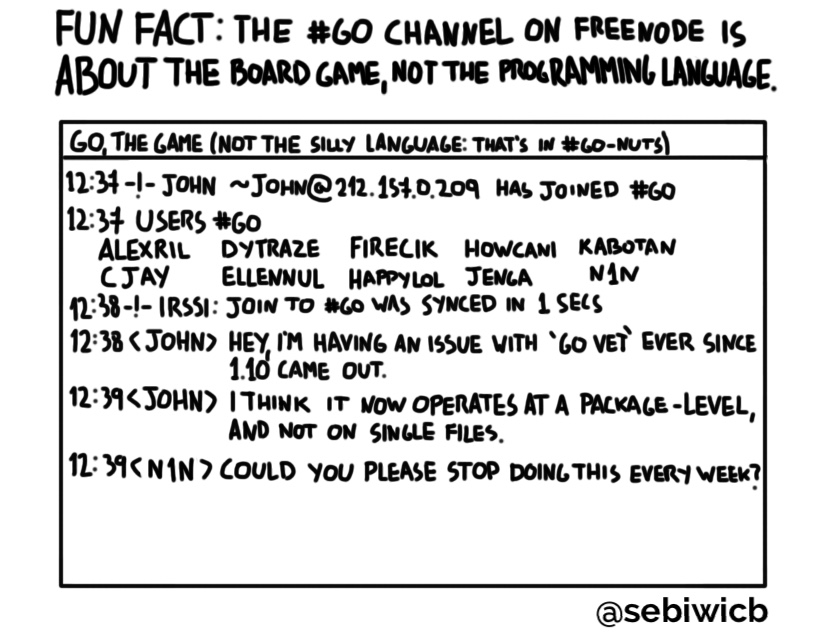 FUN FACT: THE #GO CHANNEL ON FREENODE IS
ABOUT THE BOARD GAME, NOT THE PROGRAMMING LANGUAGE.
GO, THE GAME (NOT THE SILLY LANGUAGE: THAT'S IN #GO-NUTS)
12:37 -!- JOHN ~JOHN@212.157.0.209 HAS JOINED #GO
12:37 USERS #GO
ALEXRIL DYTRAZE FIRECIK HOWCANI KABOTAN
CJAY ELLENNUL HAPPYLOL JENGA N1N
12:38 -!- IRSSI: JOIN TO #GO WAS SYNCED IN 1 SECS
12:38 <JOHN> HEY, I'M HAVING AN ISSUE WITH `GO VET` EVER SINCE
1.10 CAME OUT.
12:39 <JOHN> I THINK IT NOW OPERATES AT A PACKAGE-LEVEL,
AND NOT ON SINGLE FILES.
12:39 <N1N> COULD YOU PLEASE STOP DOING THIS EVERY WEEK?
@sebiwicb